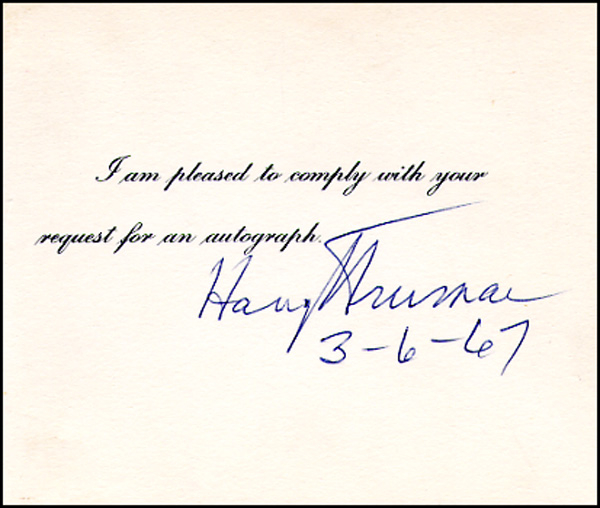 I am pleased to comply with your
request for an autograph.
Harry Truman
3-6-67